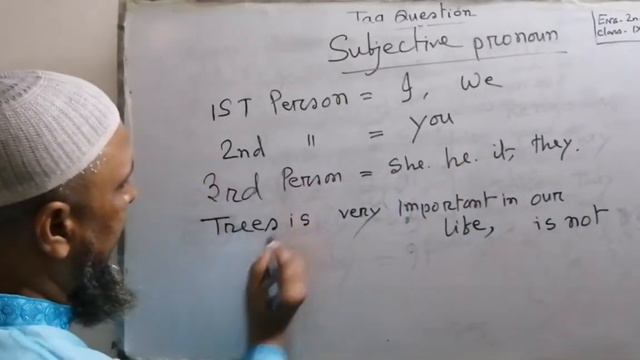 Tag Question
Subjective pronoun
Eng. 2n
Class. IX
1ST Person = I, we
2nd " = you
3rd Person = she. he. it, they.
Trees is very important in our
life, is not